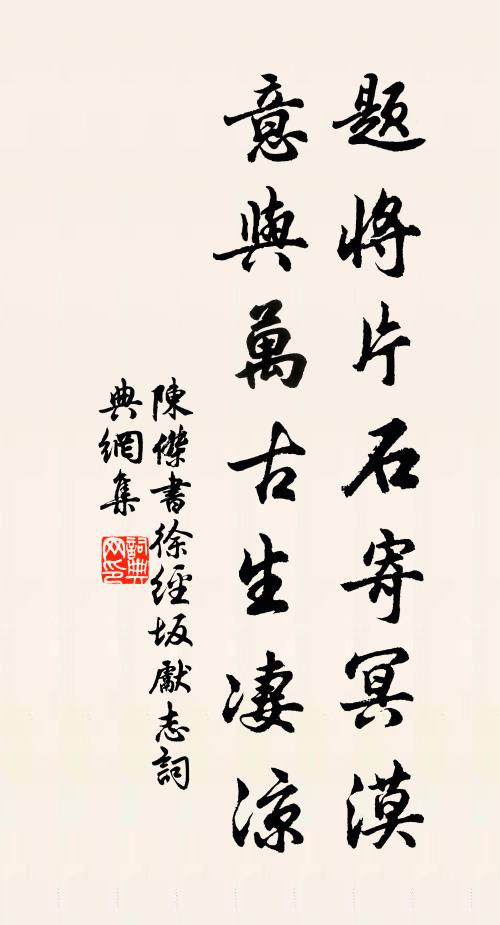 題將片石寄冥漠
意與萬古生淒涼
陳傑書徐經坂獻志詞
典網集
詞典網印